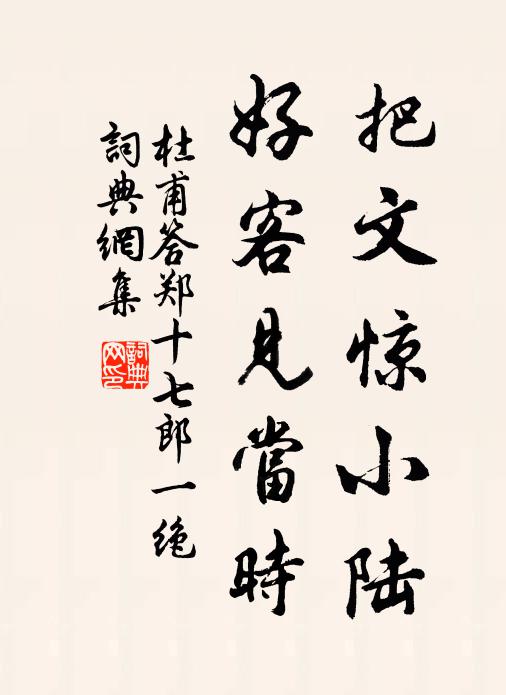 把文惊小陆
好客見當時
杜甫答郑十七郎一绝
詞典網集
詞典网印